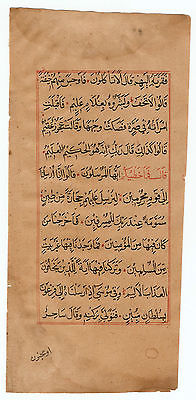 فَقَرَّبَهُ إِلَيْهِمْ قَالَ أَلَا تَأْكُلُونَ فَأَوْجَسَ مِنْهُمْ خِيفَةً
قَالُوا لَا تَخَفْ وَبَشَّرُوهُ بِغُلَامٍ عَلِيمٍ فَأَقْبَلَتِ
امْرَأَتُهُ فِي صَرَّةٍ فَصَكَّتْ وَجْهَهَا وَقَالَتْ عَجُوزٌ عَقِيمٌ
قَالُوا كَذَلِكِ قَالَ رَبُّكِ إِنَّهُ هُوَ الْحَكِيمُ الْعَلِيمُ
قَالَ فَمَا خَطْبُكُمْ أَيُّهَا الْمُرْسَلُونَ قَالُوا إِنَّا أُرْسِلْنَا
إِلَى قَوْمٍ مُجْرِمِينَ لِنُرْسِلَ عَلَيْهِمْ حِجَارَةً مِنْ طِينٍ
مُسَوَّمَةً عِنْدَ رَبِّكَ لِلْمُسْرِفِينَ فَأَخْرَجْنَا مَنْ
كَانَ فِيهَا مِنَ الْمُؤْمِنِينَ فَمَا وَجَدْنَا فِيهَا غَيْرَ بَيْتٍ
مِنَ الْمُسْلِمِينَ وَتَرَكْنَا فِيهَا آيَةً لِلَّذِينَ يَخَافُونَ
الْعَذَابَ الْأَلِيمَ وَفِي مُوسَى إِذْ أَرْسَلْنَاهُ إِلَى فِرْعَوْنَ
بِسُلْطَانٍ مُبِينٍ فَتَوَلَّى بِرُكْنِهِ وَقَالَ سَاحِرٌ
او مجنون